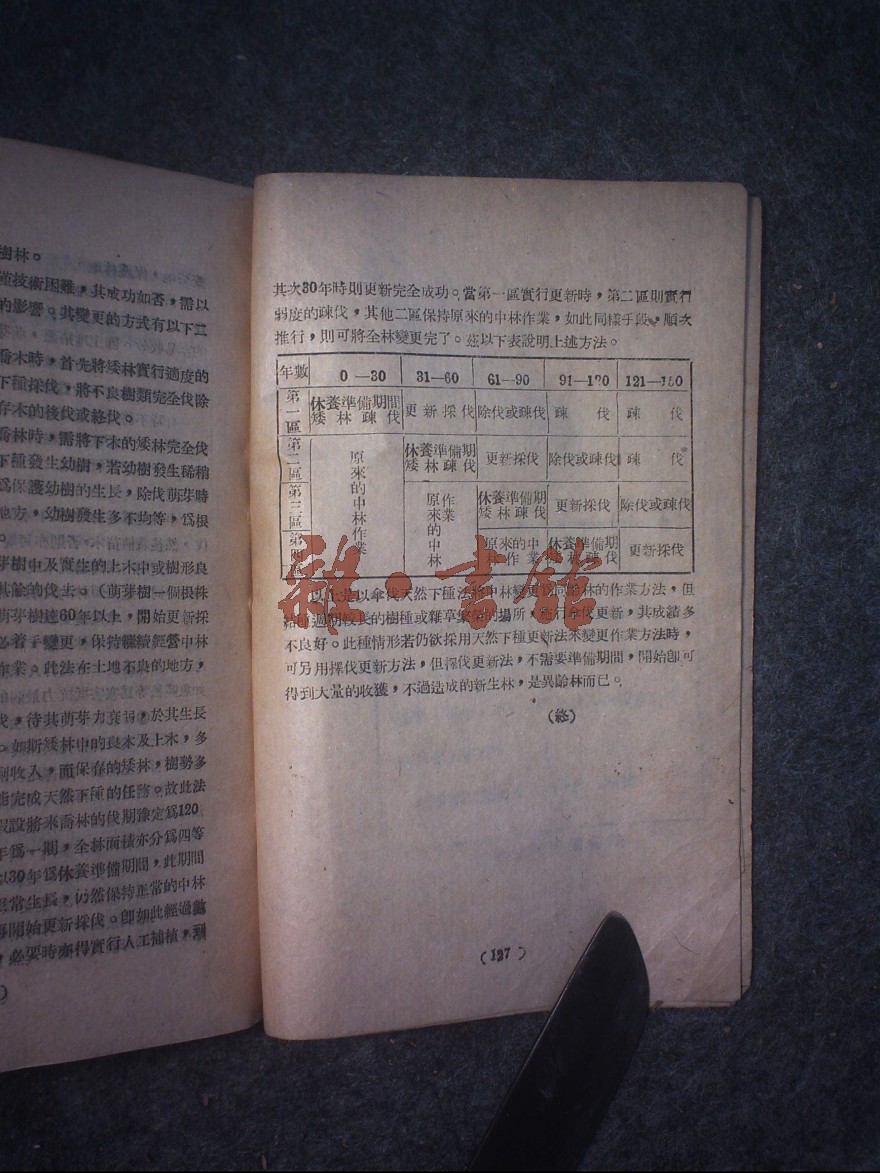 樹林。
技術困難，其成功如否，需以
的影響。其變更的方式有以下二
喬木時，首先將矮林實行適度的
下種採伐，將不良樹類完全伐除
存木的後伐或終伐。
喬林時，需將下木的矮林完全伐
下種發生幼樹，若幼樹發生稀稍
爲保護幼樹的生長，除伐萌芽時
地方，幼樹發生多不均等，爲根
。
芽樹中及實生的上木中或樹形良
其餘的伐去。（萌芽樹一個根株
萌芽樹達60年以上，開始更新採
必着手變更，保持繼續經營中林
作業。此法在土地不良的地方，
伐，待其萌芽力衰弱，於其生長
。如斯矮林中的良木及上木，多
收入，而保存的矮林，樹勢多
能完成天然下種的任務。故此法
假設將來喬林的伐期豫定爲120
年爲一期，全林面積亦分爲四等
以30年爲休養準備期間，此期間
正常生長，仍然保持正常的中林
再開始更新採伐。卽如此經過
，必要時亦得實行人工補植，
其次30年時則更新完全成功。當第一區實行更新時，第二區則實行
弱度的疎伐，其他二區保持原來的中林作業，如此同樣手段，順次
推行，則可將全林變更完了。茲以下表說明上述方法。
年數 0—30 31—60 61—90 91—120 121—150
第一區 休養準備期間矮林疎伐 更新採伐 除伐或疎伐 疎伐 疎伐
第二區 原來的中林作業 休養準備期矮林疎伐 更新採伐 除伐或疎伐 疎伐
第三區 原來的中林作業 休養準備期矮林疎伐 更新採伐 除伐或疎伐
第 原來的中作業 休養準備期林疎伐 更新採伐
以上是以傘伐天然下種法將中林變更林的作業方法，但
結週期較長的樹種或雜草繁的場所，施行傘伐更新，其成績多
不良好。此種情形若仍欲採用天然下種更新法來變更作業方法時，
可另用擇伐更新方法，但擇伐更新法，不需要準備期間，開始卽可
得到大量的收獲，不過造成的新生林，是異齡林而已。
（終）
（127）
雜·書館